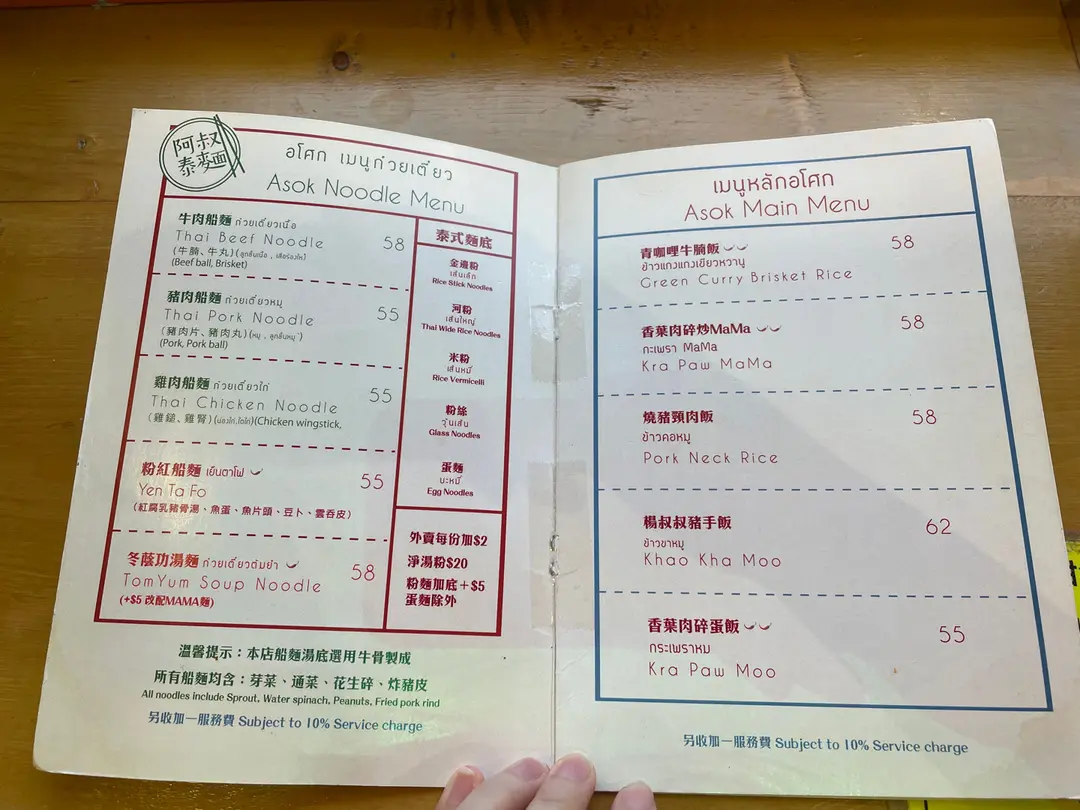 阿叔
泰麵
อโศก เมนูก๋วยเตี๋ยว
Asok Noodle Menu
牛肉船麵 ก๋วยเตี๋ยวเนื้อ
Thai Beef Noodle 58
(牛腩、牛丸)
(Beef ball, Brisket)
豬肉船麵 ก๋วยเตี๋ยวหมู
Thai Pork Noodle 55
(豬肉片、豬肉丸) (หมู , ลูกชิ้นหมู)
(Pork, Pork ball)
雞肉船麵 ก๋วยเตี๋ยวไก่
Thai Chicken Noodle 55
(雞鎚、雞腎) (Chicken wingstick,
粉紅船麵 เย็นตาโฟ
Yen Ta Fo 55
(紅腐乳豬骨湯、魚蛋、魚片頭、豆卜、雲吞皮)
冬蔭功湯麵 ก๋วยเตี๋ยวต้มยำ
TomYum Soup Noodle 58
(+$5 改配MAMA麵)
泰式麵底
金邊粉
เส้นเล็ก
Rice Stick Noodles
河粉
เส้นใหญ่
Thai Wide Rice Noodles
米粉
เส้นหมี่
Rice Vermicelli
粉絲
วุ้นเส้น
Glass Noodles
蛋麵
บะหมี่
Egg Noodles
外賣每份加$2
淨湯粉$20
粉麵加底+$5
蛋麵除外
溫馨提示：本店船麵湯底選用牛骨製成
所有船麵均含：芽菜、通菜、花生碎、炸豬皮
All noodles include Sprout, Water spinach, Peanuts, Fried pork rind
另收加一服務費 Subject to 10% Service charge
เมนูหลักอโศก
Asok Main Menu
青咖哩牛腩飯 58
ข้าวแกงแกงเขียวหวานู
Green Curry Brisket Rice
香葉肉碎炒MaMa 58
กะเพรา MaMa
Kra Paw MaMa
燒豬頸肉飯 58
ข้าวคอหมู
Pork Neck Rice
楊叔叔豬手飯 62
ข้าวขาหมู
Khao Kha Moo
香葉肉碎蛋飯 55
กระเพราหม
Kra Paw Moo
另收加一服務費 Subject to 10% Service charge